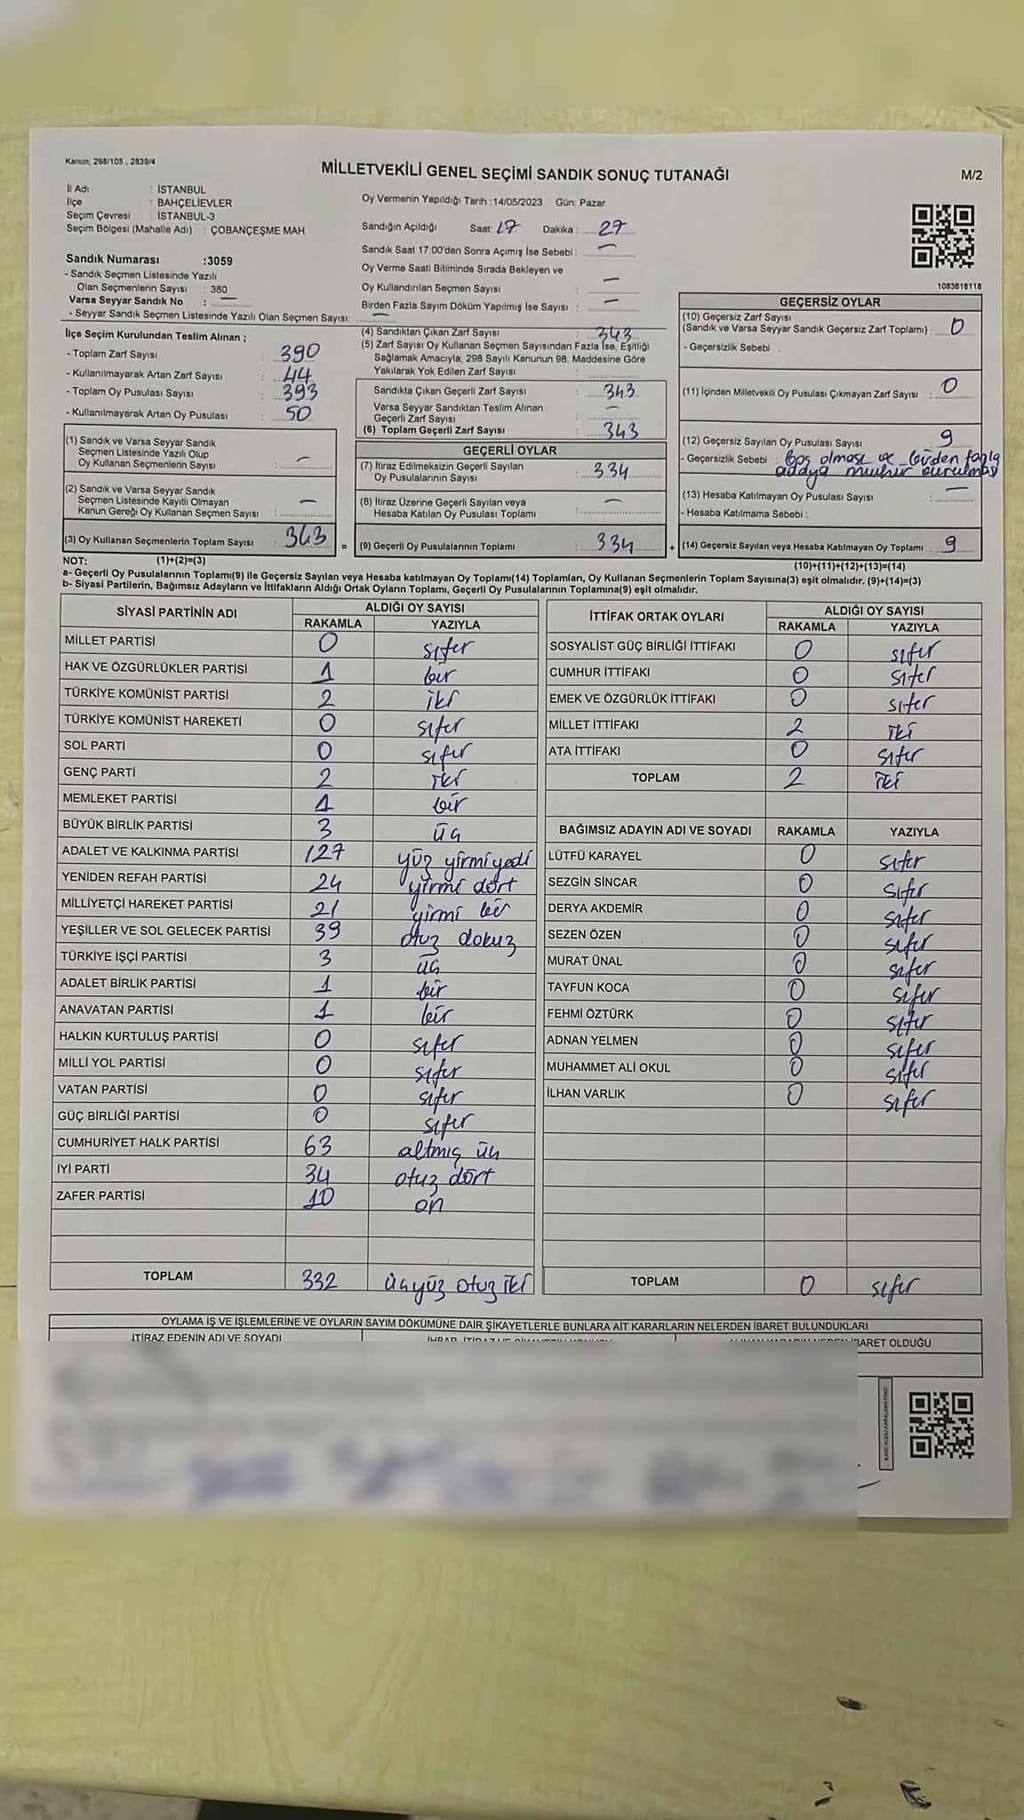 Kanun; 298/105 , 2839/4
MİLLETVEKİLİ GENEL SEÇİMİ SANDIK SONUÇ TUTANAĞI
M/2
İl Adı : İSTANBUL
İlçe : BAHÇELİEVLER
Seçim Çevresi : İSTANBUL-3
Seçim Bölgesi (Mahalle Adı) : ÇOBANÇEŞME MAH.
Oy Vermenin Yapıldığı Tarih :14/05/2023 Gün: Pazar
Sandığın Açıldığı Saat: 17 Dakika : 27
Sandık Saat 17:00'den Sonra Açımış İse Sebebi : —
Oy Verme Saati Bitiminde Sırada Bekleyen ve
Oy Kullandırılan Seçmen Sayısı : —
Birden Fazla Sayım Döküm Yapılmış İse Sayısı : —
Sandık Numarası :3059
- Sandık Seçmen Listesinde Yazılı
Olan Seçmenlerin Sayısı : 380
Varsa Seyyar Sandık No : —
- Seyyar Sandık Seçmen Listesinde Yazılı Olan Seçmen Sayısı: —
İlçe Seçim Kurulundan Teslim Alınan ;
- Toplam Zarf Sayısı : 390
- Kullanılmayarak Artan Zarf Sayısı : 44
- Toplam Oy Pusulası Sayısı : 393
- Kullanılmayarak Artan Oy Pusulası : 50
(1) Sandık ve Varsa Seyyar Sandık
Seçmen Listesinde Yazılı Olup
Oy Kullanan Seçmenlerin Sayısı : —
(2) Sandık ve Varsa Seyyar Sandık
Seçmen Listesinde Kayıtlı Olmayan
Kanun Gereği Oy Kullanan Seçmen Sayısı : —
(3) Oy Kullanan Seçmenlerin Toplam Sayısı : 343
(4) Sandıktan Çıkan Zarf Sayısı : 343
(5) Zarf Sayısı Oy Kullanan Seçmen Sayısından Fazla İse, Eşitliği
Sağlamak Amacıyla, 298 Sayılı Kanunun 98. Maddesine Göre
Yakılarak Yok Edilen Zarf Sayısı :
Sandıkta Çıkan Geçerli Zarf Sayısı : 343
Varsa Seyyar Sandıktan Teslim Alınan
Geçerli Zarf Sayısı : —
(6) Toplam Geçerli Zarf Sayısı : 343
GEÇERLİ OYLAR
(7) İtiraz Edilmeksizin Geçerli Sayılan
Oy Pusulalarının Sayısı : 334
(8) İtiraz Üzerine Geçerli Sayılan veya
Hesaba Katılan Oy Pusulası Toplamı : —
= (9) Geçerli Oy Pusulalarının Toplamı : 334
1083616118
GEÇERSİZ OYLAR
(10) Geçersiz Zarf Sayısı
(Sandık ve Varsa Seyyar Sandık Geçersiz Zarf Toplamı) : 0
- Geçersizlik Sebebi :
(11) İçinden Milletvekili Oy Pusulası Çıkmayan Zarf Sayısı : 0
(12) Geçersiz Sayılan Oy Pusulası Sayısı : 9
- Geçersizlik Sebebi : Boş olması ve birden fazla
adaya mühür vurulması
(13) Hesaba Katılmayan Oy Pusulası Sayısı : —
- Hesaba Katılmama Sebebi :
+ (14) Geçersiz Sayılan veya Hesaba Katılmayan Oy Toplamı : 9
NOT: (1)+(2)=(3) (10)+(11)+(12)+(13)=(14)
a- Geçerli Oy Pusulalarının Toplamı(9) ile Geçersiz Sayılan veya Hesaba katılmayan Oy Toplamı(14) Toplamları, Oy Kullanan Seçmenlerin Toplam Sayısına(3) eşit olmalıdır. (9)+(14)=(3)
b- Siyasi Partilerin, Bağımsız Adayların ve İttifakların Aldığı Ortak Oyların Toplamı, Geçerli Oy Pusulalarının Toplamına(9) eşit olmalıdır.
SİYASİ PARTİNİN ADI ALDIĞI OY SAYISI
RAKAMLA YAZIYLA
MİLLET PARTİSİ 0 sıfır
HAK VE ÖZGÜRLÜKLER PARTİSİ 1 bir
TÜRKİYE KOMÜNİST PARTİSİ 2 iki
TÜRKİYE KOMÜNİST HAREKETİ 0 sıfır
SOL PARTİ 0 sıfır
GENÇ PARTİ 2 iki
MEMLEKET PARTİSİ 1 bir
BÜYÜK BİRLİK PARTİSİ 3 üç
ADALET VE KALKINMA PARTİSİ 127 yüz yirmi yedi
YENİDEN REFAH PARTİSİ 24 yirmi dört
MİLLİYETÇİ HAREKET PARTİSİ 21 yirmi bir
YEŞİLLER VE SOL GELECEK PARTİSİ 39 otuz dokuz
TÜRKİYE İŞÇİ PARTİSİ 3 üç
ADALET BİRLİK PARTİSİ 1 bir
ANAVATAN PARTİSİ 1 bir
HALKIN KURTULUŞ PARTİSİ 0 sıfır
MİLLİ YOL PARTİSİ 0 sıfır
VATAN PARTİSİ 0 sıfır
GÜÇ BİRLİĞİ PARTİSİ 0 sıfır
CUMHURİYET HALK PARTİSİ 63 altmış üç
İYİ PARTİ 34 otuz dört
ZAFER PARTİSİ 10 on
TOPLAM 332 üçyüz otuz iki
İTTİFAK ORTAK OYLARI ALDIĞI OY SAYISI
RAKAMLA YAZIYLA
SOSYALİST GÜÇ BİRLİĞİ İTTİFAKI 0 sıfır
CUMHUR İTTİFAKI 0 sıfır
EMEK VE ÖZGÜRLÜK İTTİFAKI 0 sıfır
MİLLET İTTİFAKI 2 iki
ATA İTTİFAKI 0 sıfır
TOPLAM 2 iki
BAĞIMSIZ ADAYIN ADI VE SOYADI RAKAMLA YAZIYLA
LÜTFÜ KARAYEL 0 sıfır
SEZGİN SİNCAR 0 sıfır
DERYA AKDEMİR 0 sıfır
SEZEN ÖZEN 0 sıfır
MURAT ÜNAL 0 sıfır
TAYFUN KOCA 0 sıfır
FEHMİ ÖZTÜRK 0 sıfır
ADNAN YELMEN 0 sıfır
MUHAMMET ALİ OKUL 0 sıfır
İLHAN VARLIK 0 sıfır
TOPLAM 0 sıfır
OYLAMA İŞ VE İŞLEMLERİNE VE OYLARIN SAYIM DÖKÜMÜNE DAİR ŞİKAYETLERLE BUNLARA AİT KARARLARIN NELERDEN İBARET BULUNDUKLARI
İTİRAZ EDENİN ADI VE SOYADI
İBARET OLDUĞU